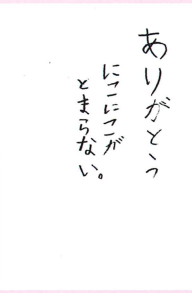 ありがとう
にこにこが
とまらない。